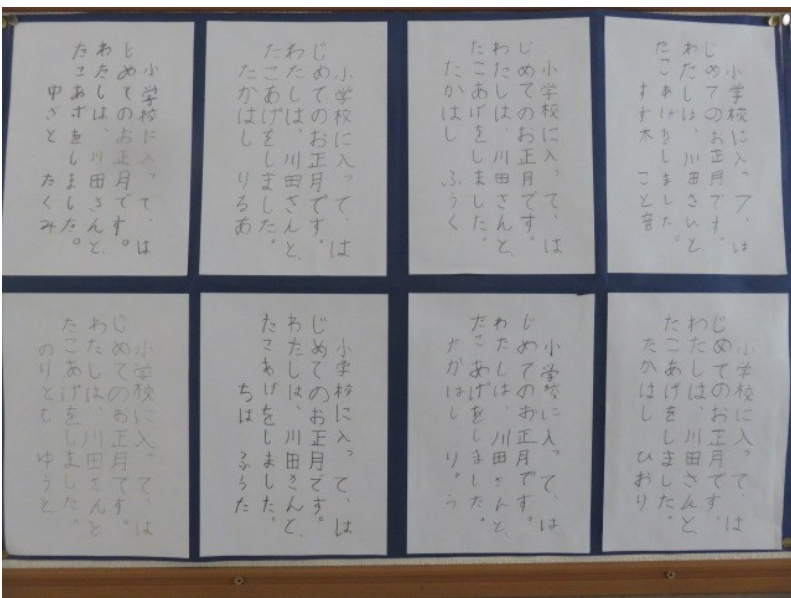 小学校に入って、は
じめてのお正月です。
わたしは、川田さんと
たこあげをしました。
すず木 こと音
小学校に入って、は
じめてのお正月です。
わたしは、川田さんと、
たこあげをしました。
たかはし ふうく
小学校に入って、は
じめてのお正月です。
わたしは、川田さんと、
たこあげをしました。
たかはし りるあ
小学校に入って、は
じめてのお正月です。
わたしは、川田さんと、
たこあげをしました。
ゆざと たくみ
小学校に入って、は
じめてのお正月です。
わたしは、川田さんと、
たこあげをしました。
たかはし ひおり
小学校に入って、は
じめてのお正月です。
わたしは、川田さんと、
たこあげをしました。
たかはし
小学校に入って、は
じめてのお正月です。
わたしは、川田さんと、
たこあげをしました。
ちば ふうた
小学校に入って、は
じめてのお正月です。
わたしは、川田さんと
たこあげをしました。
のりとも ゆうと